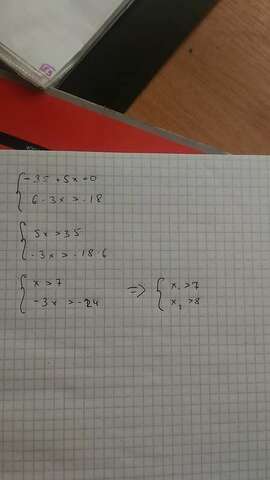 -35+5x>0
6-3x>-18
5x>35
-3x>-18-6
x>7
-3x>-24 => x₁>7
x₂>8